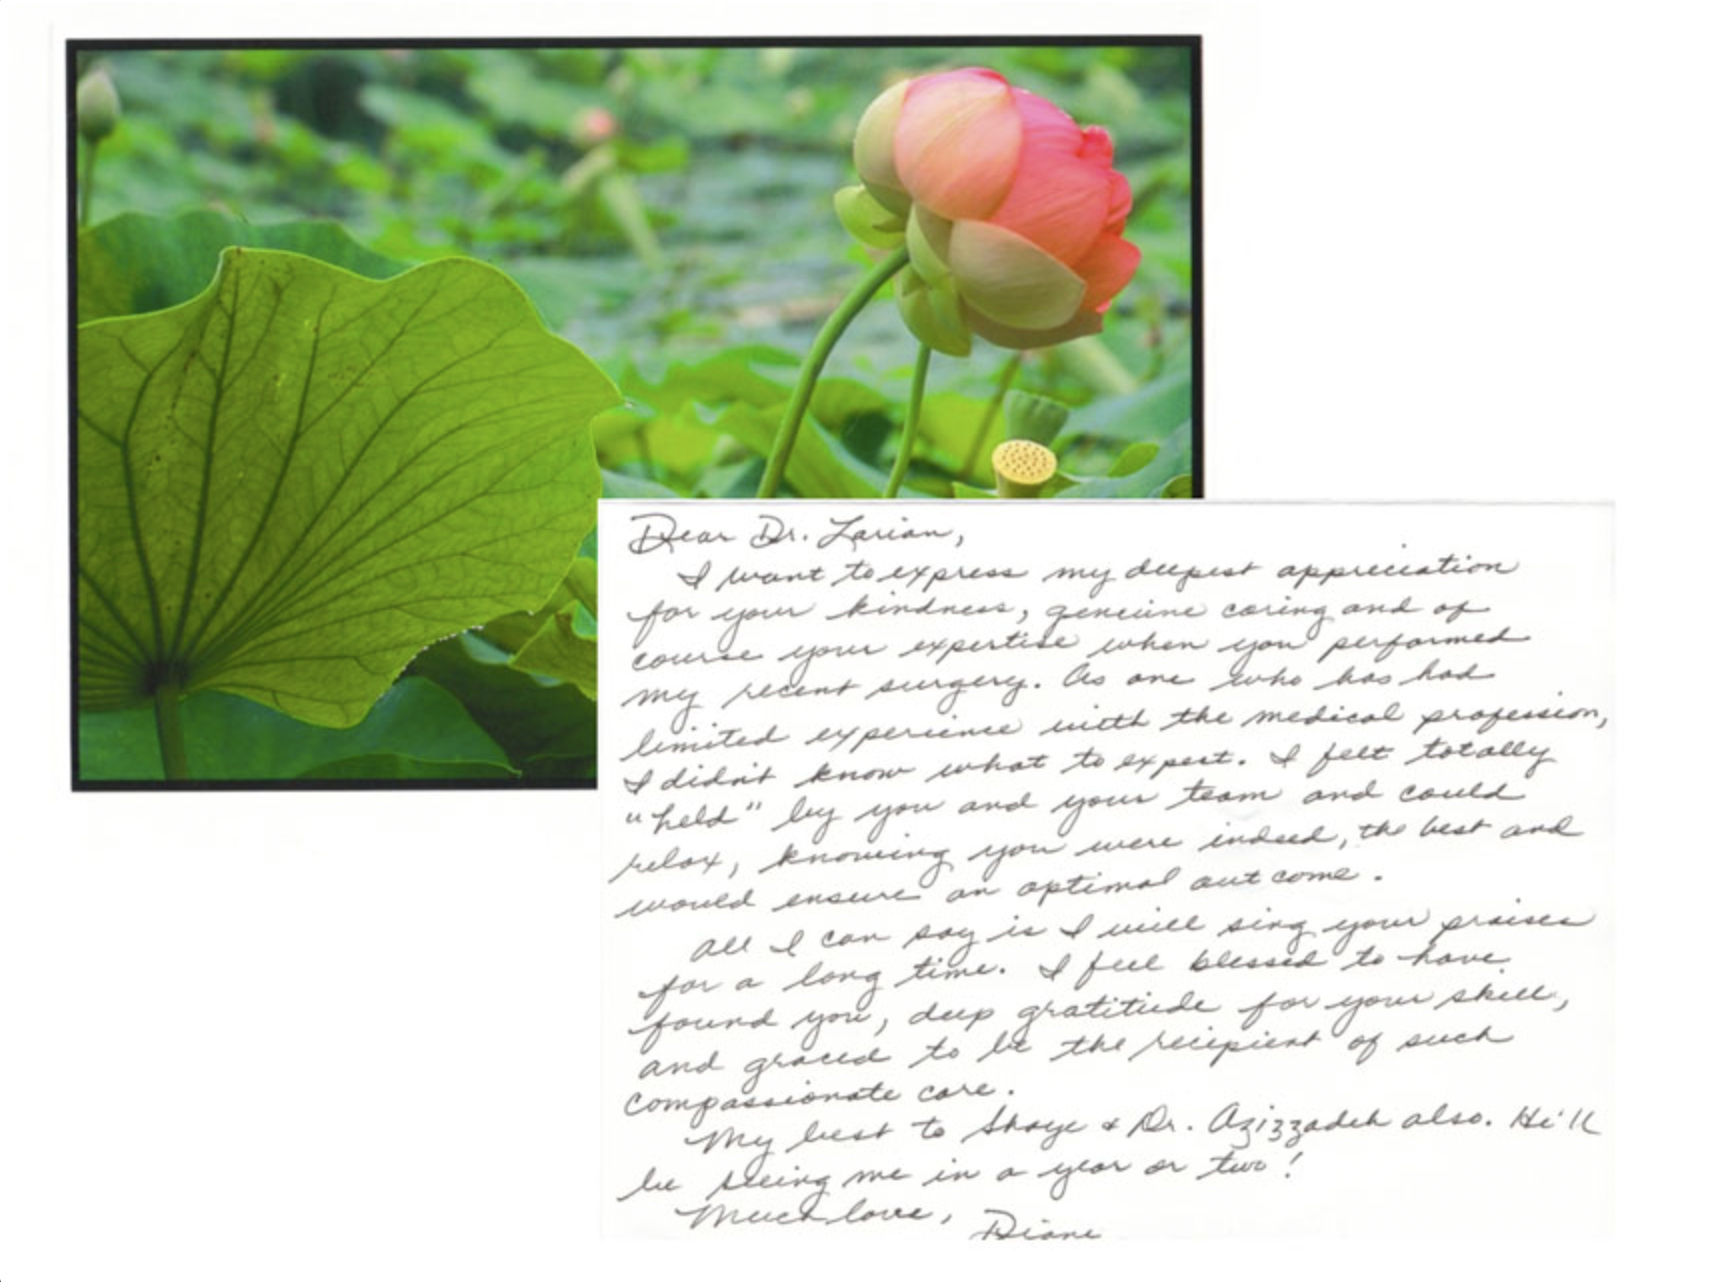 Dear Dr. Larian,
I want to express my deepest appreciation
for your kindness, genuine caring and of
course your expertise when you performed
my recent surgery. As one who has had
limited experience with the medical profession,
I didn't know what to expect. I felt totally
"held" by you and your team and could
relax, knowing you were indeed, the best and
would ensure an optimal outcome.
All I can say is I will sing your praises
for a long time. I feel blessed to have
found you, deep gratitude for your skill,
and graced to be the recipient of such
compassionate care.
My best to Shaye & Dr. Azizzadeh also. He'll
be seeing me in a year or two!
Much love, Diane